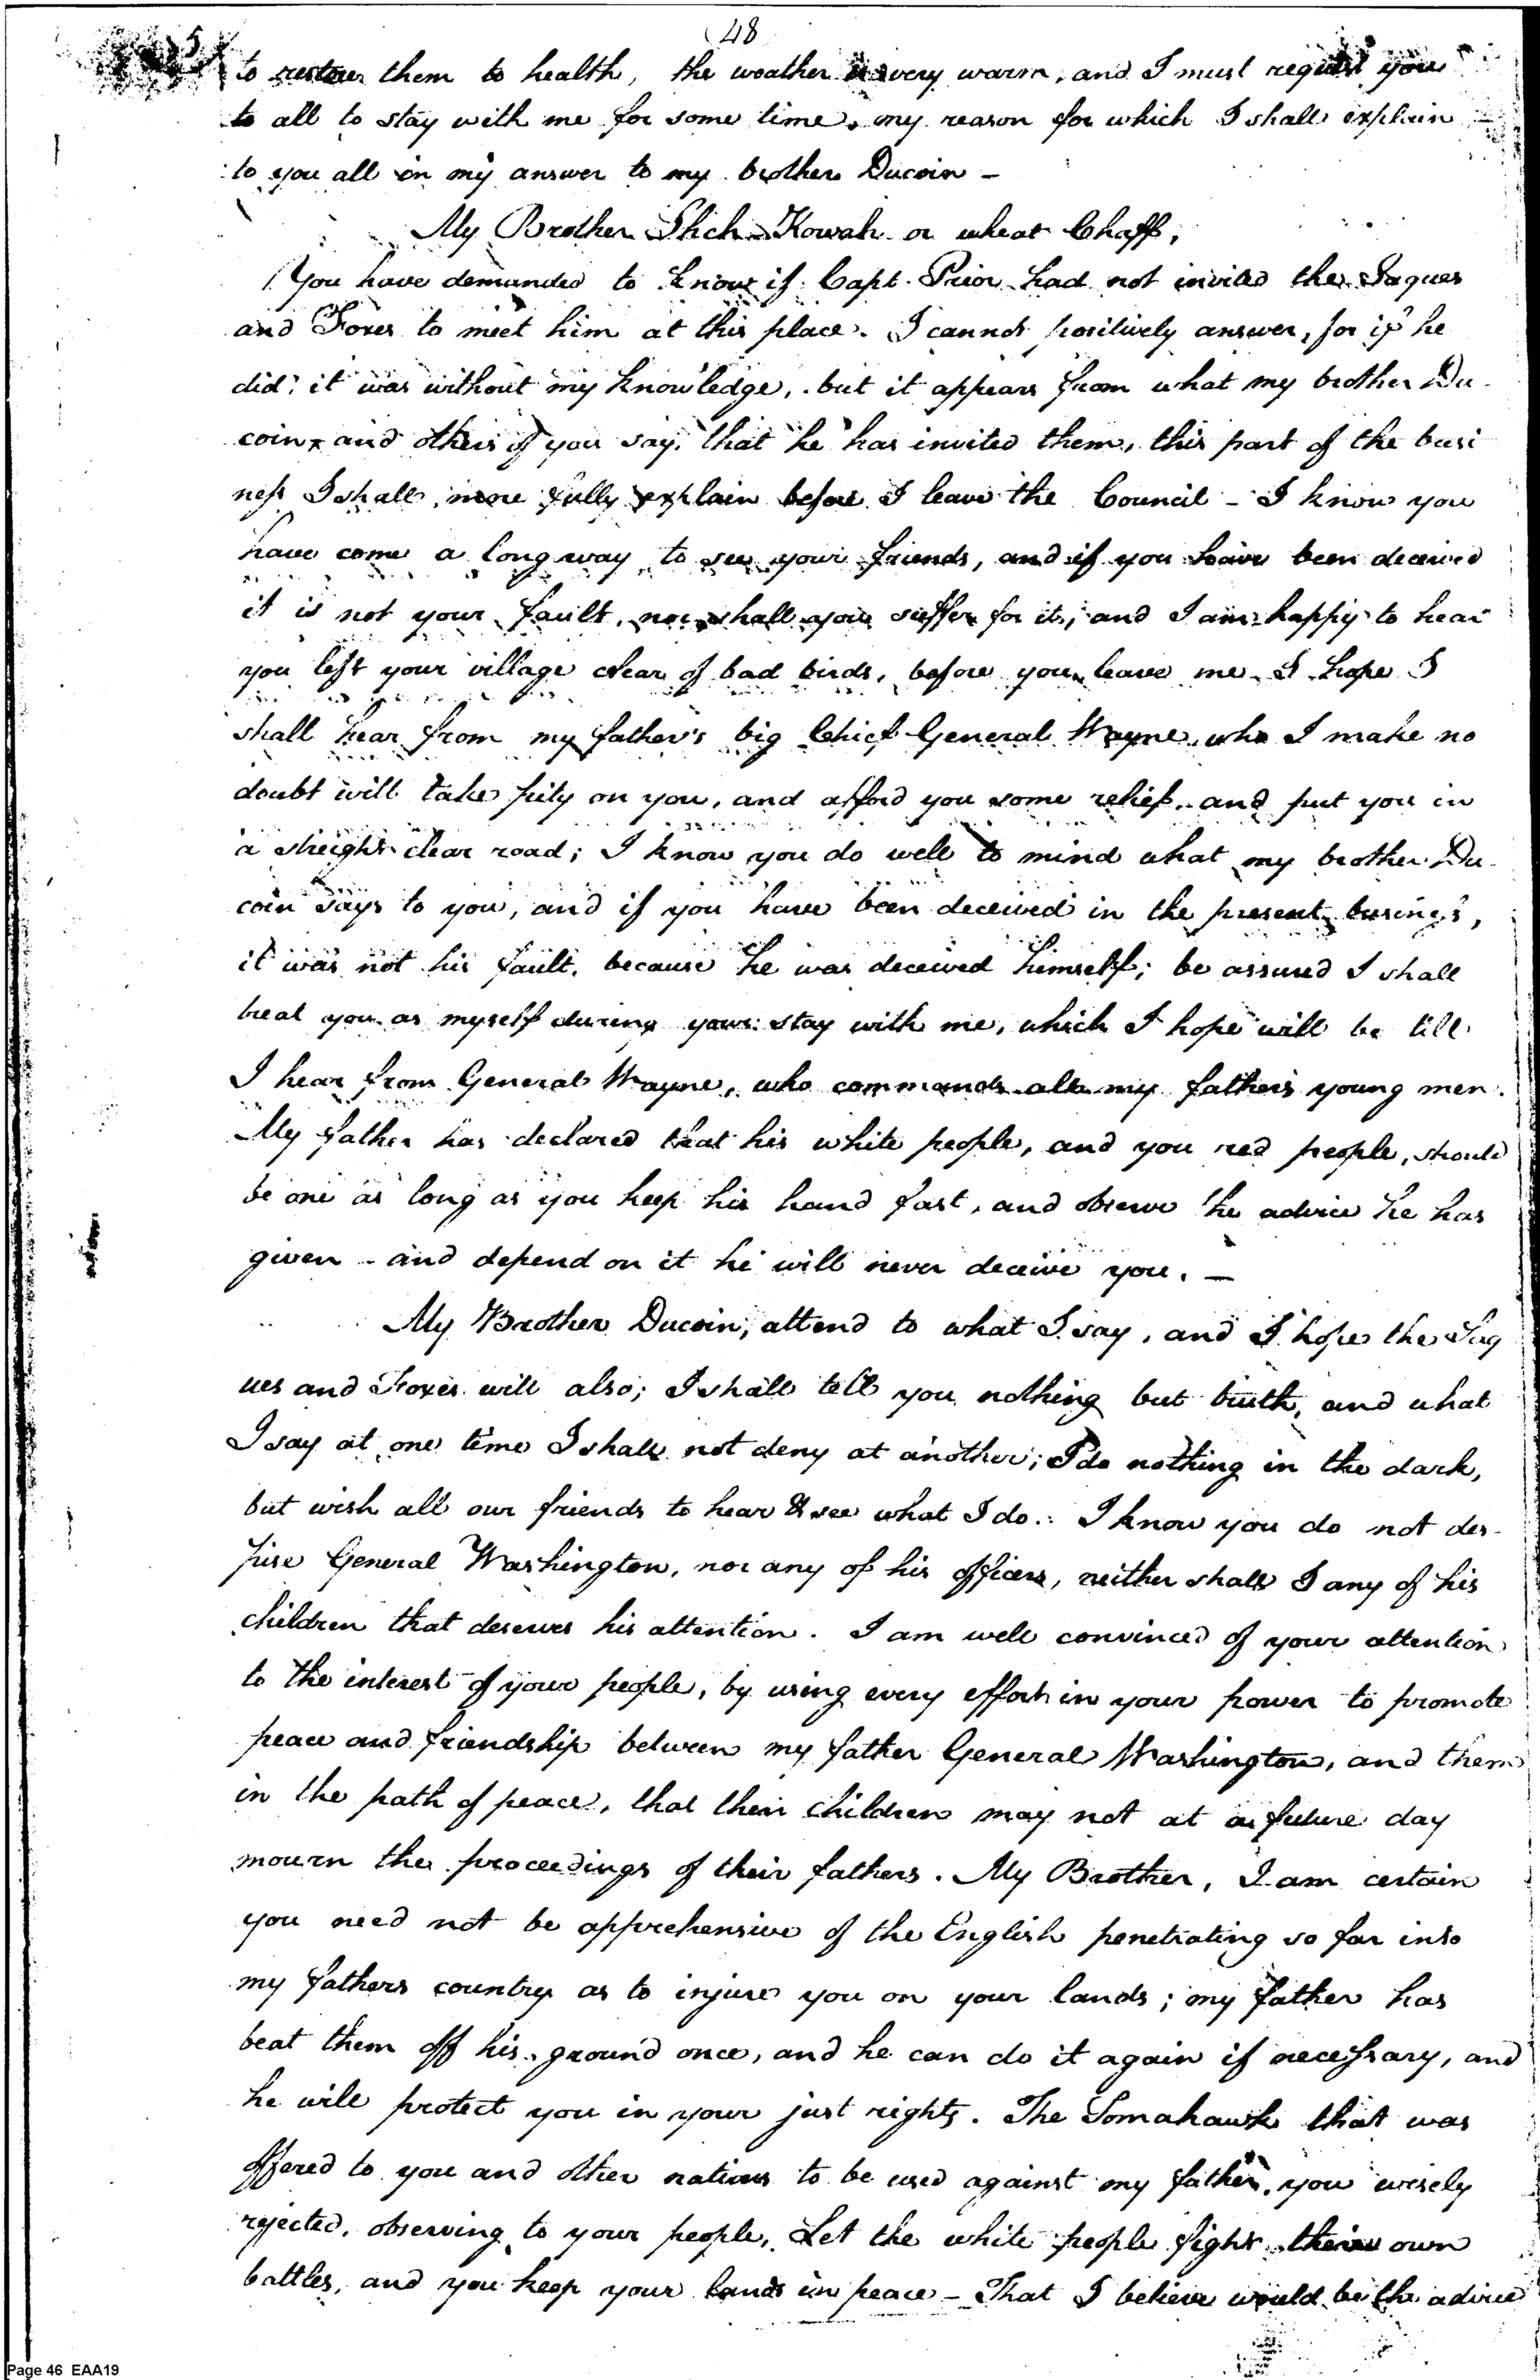 48
to restore them to health, the weather is very warm, and I must request you
to all to stay with me for some time, my reason for which I shall explain
to you all in my answer to my brother Ducoin –
My Brother Shch-Kowah or wheat Chaff,
You have demanded to know if Capt. Prior had not invited the Saques
and Foxes to meet him at this place. I cannot positively answer, for if he
did, it was without my knowledge, but it appears from what my brother Du-
coin, and others of you say, that he has invited them, this part of the busi
ness I shall, more fully explain before I leave the Council – I know you
have come a long way to see your friends, and if you have been deceived
it is not your fault, nor shall you suffer for it, and I am happy to hear
you left your village clear of bad birds, before you leave me I hope I
shall hear from my father's big Chief General Wayne, who I make no
doubt will take pity on you, and afford you some relief, and put you in
a streight clear road; I know you do well to mind what my brother Du-
coin says to you, and if you have been deceived in the present business,
it was not his fault, because he was deceived himself; be assured I shall
treat you as myself during your stay with me, which I hope will be till
I hear from General Wayne, who commands all my father's young men.
My father has declared that his white people, and you red people, should
be one as long as you keep his hand fast, and observe the advice he has
given – and depend on it he will never deceive you. –
My Brother Ducoin, attend to what I say, and I hope the Saq
ues and Foxes will also; I shall tell you nothing but truth, and what
I say at one time I shall not deny at another; I do nothing in the dark,
but wish all our friends to hear & see what I do. I know you do not des-
pise General Washington, nor any of his officers, neither shall I any of his
children that deserves his attention. I am well convinced of your attention
to the interest of your people, by using every effort in your power to promote
peace and friendship between my father General Washington, and them
in the path of peace, that their children may not at a future day
mourn the proceedings of their fathers. My Brother, I am certain
you need not be apprehensive of the English penetrating so far into
my fathers country as to injure you on your lands; my father has
beat them off his ground once, and he can do it again if necessary, and
he will protect you in your just rights. The Tomahawk that was
offered to you and other nations to be used against my father, you wisely
rejected, observing to your people, Let the white people fight their own
battles, and you keep your lands in peace – That I believe would be the advice
Page 46 EAA19